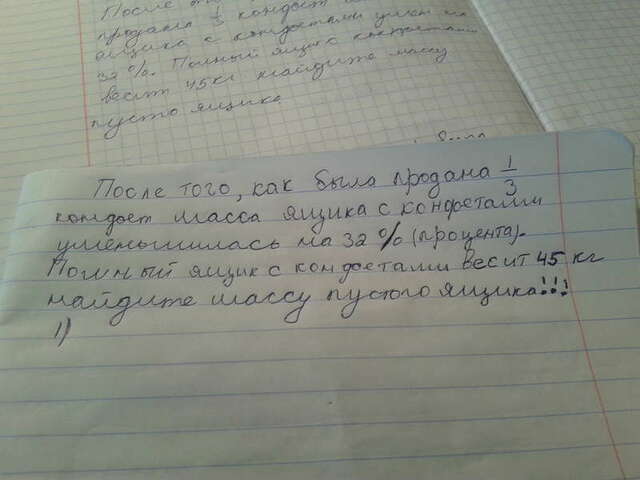 После то
продана 1/3 конфет
ящика с конфетами умен
32%. Полный ящик с конфетами
весит 45кг найдите массу
пусто ящика
была
После того, как была продана 1/3
конфет масса ящика с конфетами
уменьшилась на 32% (процента).
Полный ящик с конфетами весит 45 кг
найдите массу пустого ящика!!!
1)